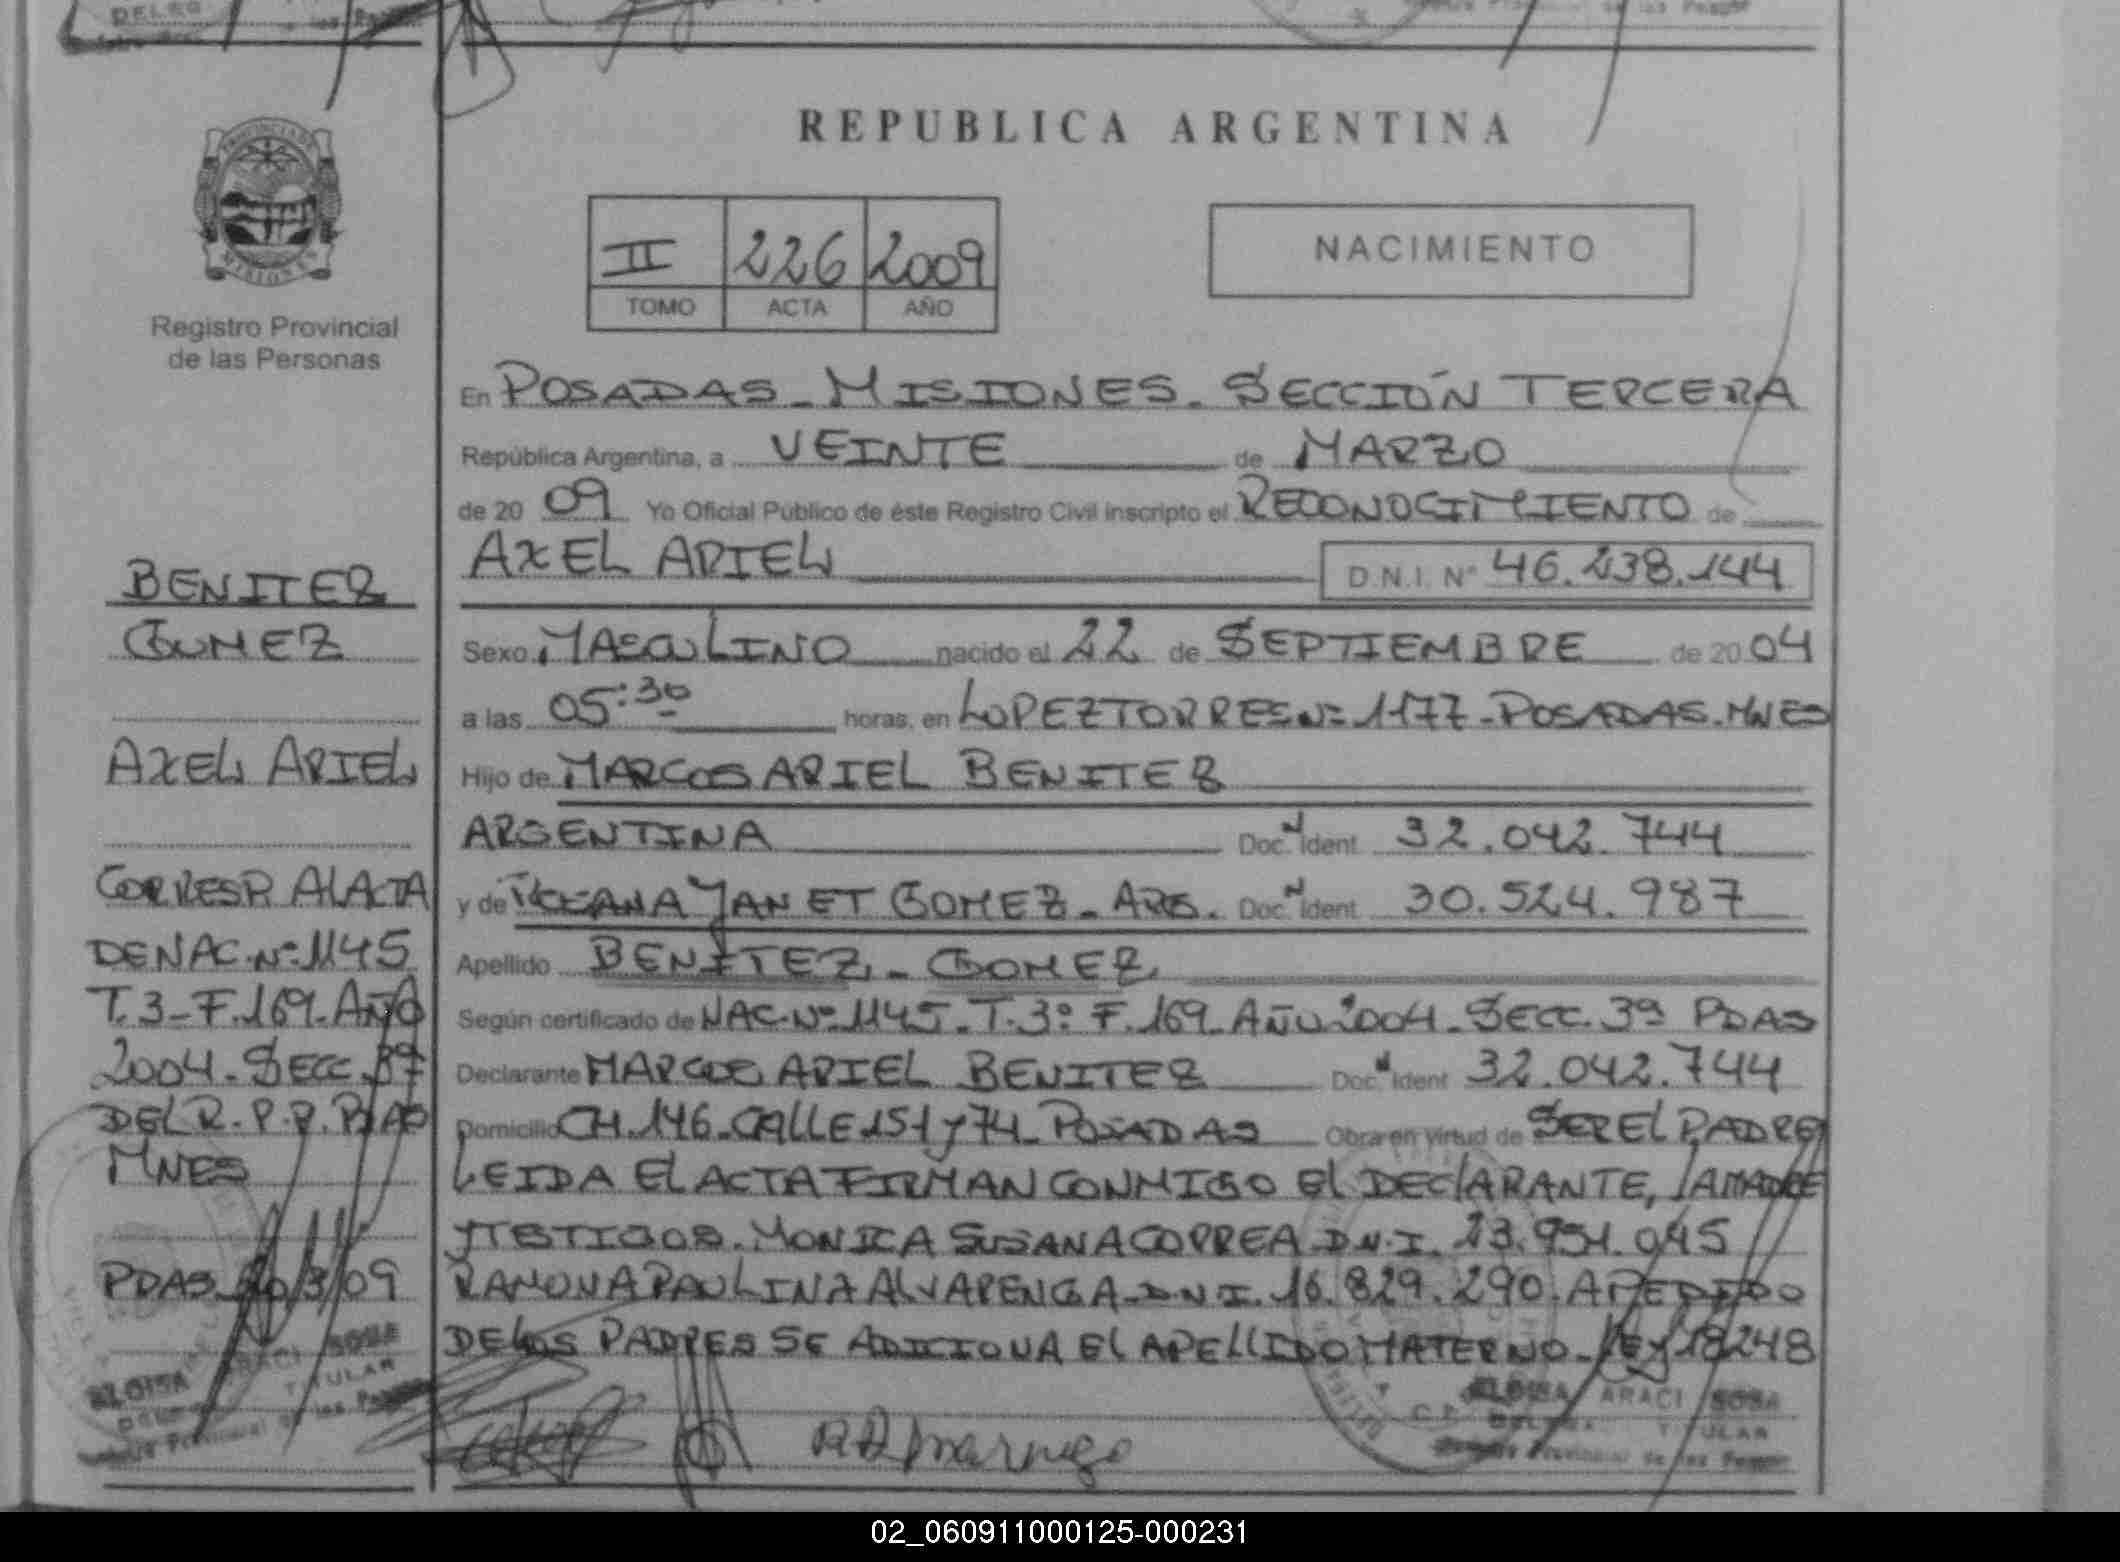 REPUBLICA ARGENTINA
II 226 2009
TOMO ACTA AÑO
NACIMIENTO
PROVINCIA DE
MISIONES
Registro Provincial
de las Personas
BENITEZ
GOMEZ
AXEL ARIEL
CORRESP. AL ACTA
DE NAC. Nº 1145
T. 3 - F. 169 - AÑO
2004 - SECC. 3ª
DEL R. P. P. PDAS
MNES
PDAS 20/3/09
ELOISA ARACI SOSA
TITULAR
Provincial de las
En POSADAS - MISIONES - SECCIÓN TERCERA
República Argentina, a VEINTE de MARZO
de 20 09 Yo Oficial Público de éste Registro Civil inscripto el RECONOCIMIENTO de
AXEL ARIEL D.N.I. Nº 46.238.144
Sexo MASCULINO nacido el 22 de SEPTIEMBRE de 20 04
a las 05:30 horas, en LOPEZ TORRES Nº 1177 - POSADAS - MNES
Hijo de MARCOS ARIEL BENITEZ
ARGENTINA Doc. Ident 32.042.744
y de JANET GOMEZ - ARG. Doc. Ident 30.524.987
Apellido BENITEZ - GOMEZ
Según certificado de NAC. Nº 1145 - T. 3º F. 169 - AÑO 2004 - SECC. 3ª PDAS
Declarante MARCOS ARIEL BENITEZ Doc. Ident 32.042.744
Domicilio CH. 146 - CALLE 151 y 74 - POSADAS Obra en virtud de SER EL PADRE
LEIDA El ACTA FIRMAN CONMIGO El DEClARANTE, lA MADRE
y TESTIGOS. MONICA SUSANA CORREA D.N.I. 23.951.045
RAMONA PAULINA AlVARENGA - D.N.I. 16.829.290 - A PEDIDO
DE LOS PADRES SE ADICIONA El APEllIDO MATERNO - lEy 18248
ELOISA ARACI SOSA
TITULAR
Provincial de las
02_060911000125-000231